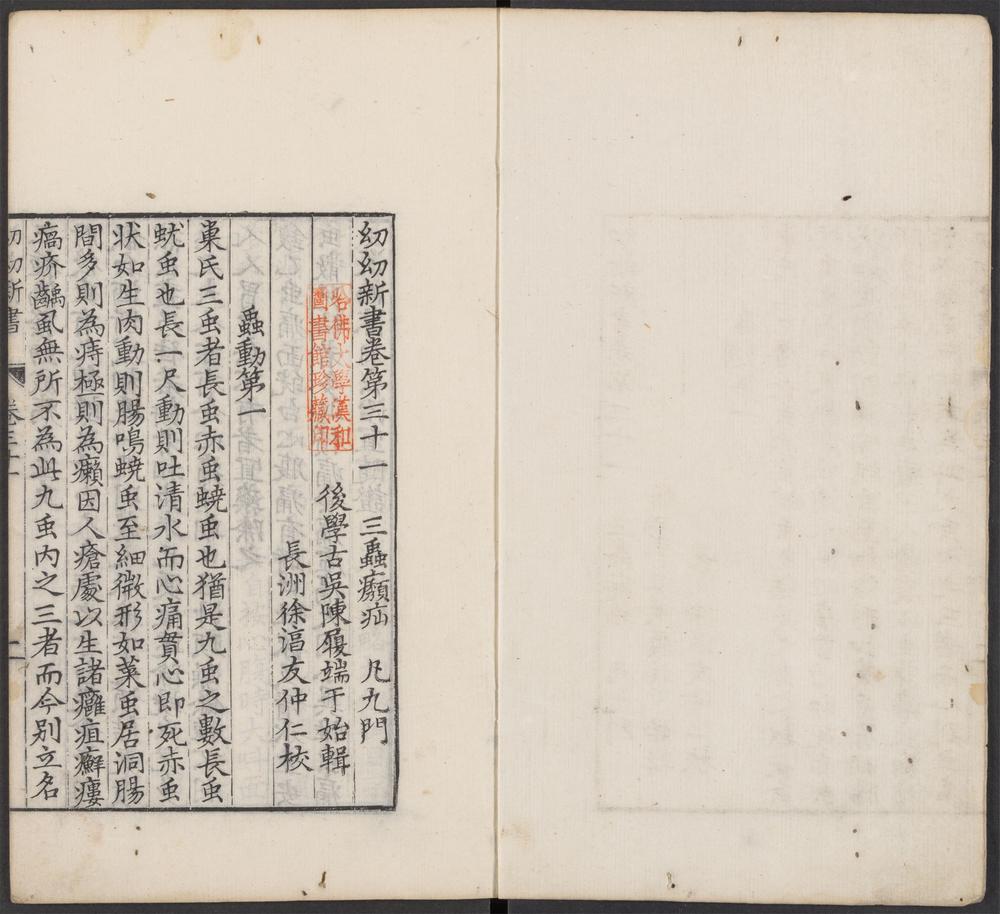 幼幼新書卷第三十一　三蟲癩疝　凡九門
哈佛大學漢和
圖書館珍藏印
後學古吳陳履端于始輯
長洲徐滆友仲仁校
蟲動第一
巢氏三虫者長虫赤虫蟯虫也猶是九虫之數長虫
蚘虫也長一尺動則吐清水而心痛貫心即死赤虫
状如生肉動則腸鳴蟯虫至細微形如菜虫居洞腸
間多則為痔極則為癩因人瘡處以生諸癰疽癬瘻
瘑疥齲虱無所不為此九虫内之三者而今别立名
幼幼新書　卷三十一　一